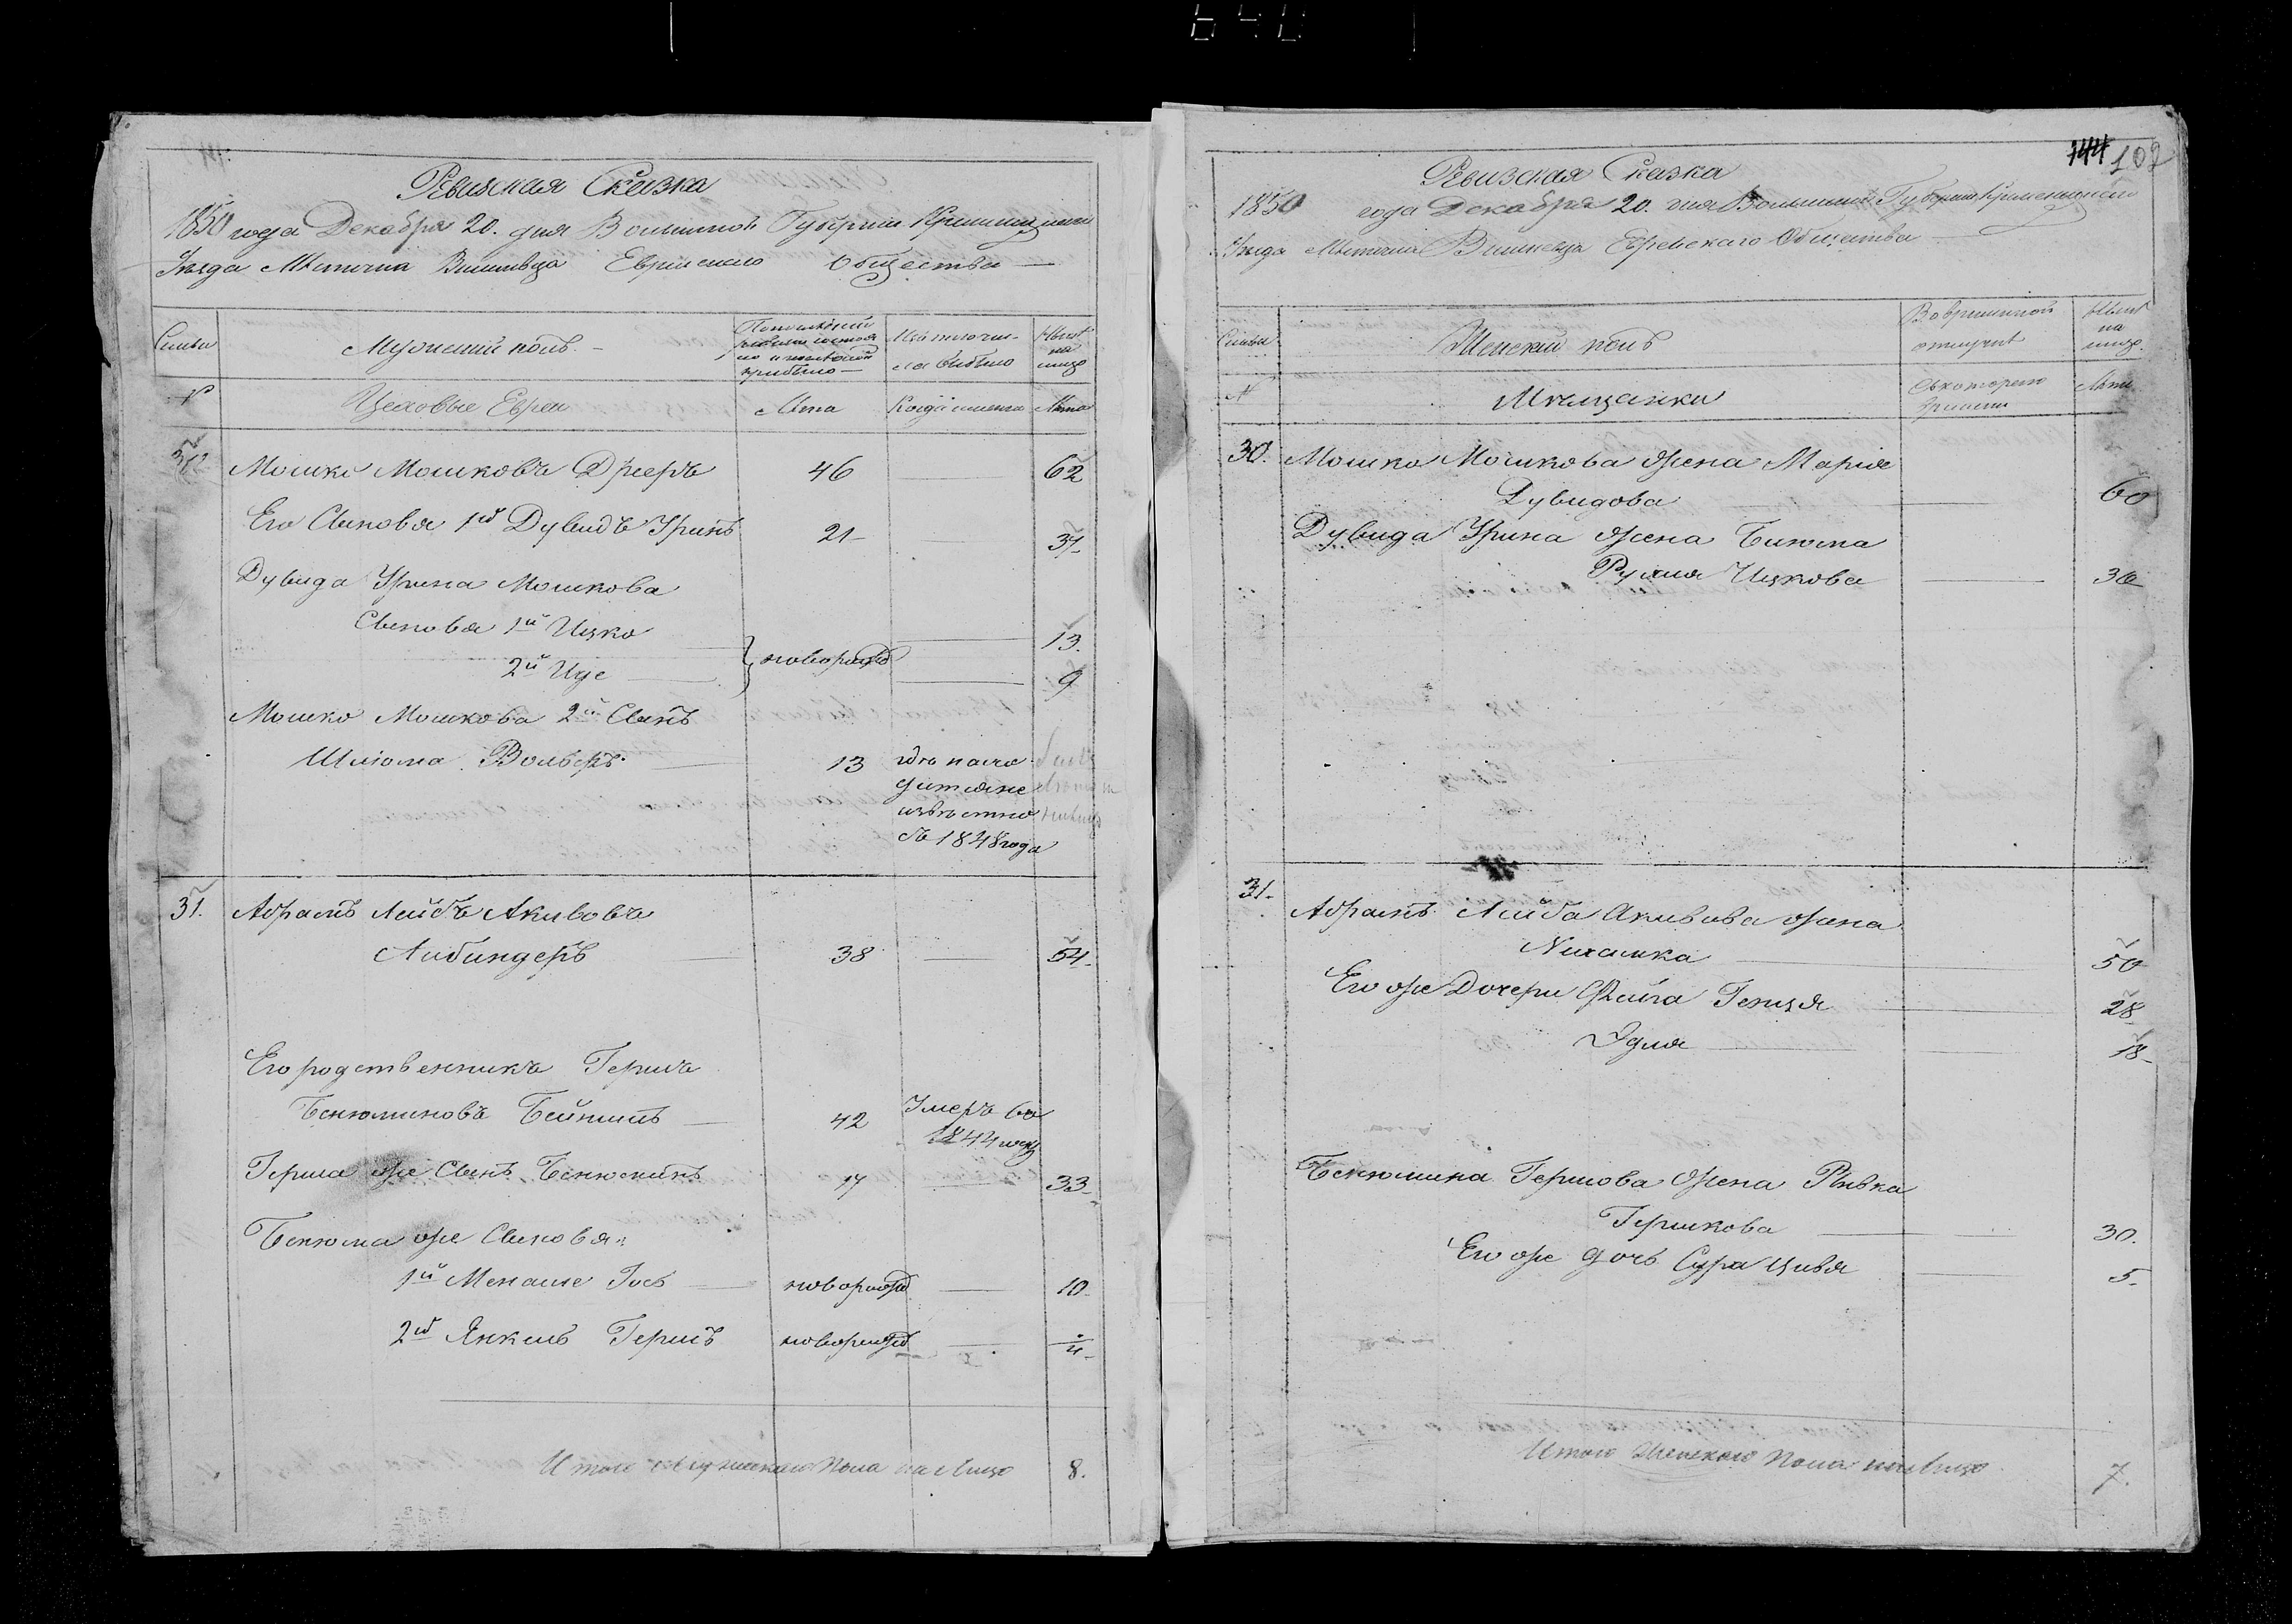 640
Ревизская Сказка
1850 года Декабря 20. дня Волынской Губернии Кременецкаго
Уезда Местечка Вишневца Еврейскаго Общества
Семьи
Мужеский полъ
Последней ревизии состояло и после оной прибыло
Изъ того числа выбыло
Ныне на лицо
№
Цеховые Евреи
Лета
Когда именно
Лета
30
Мошко Мошковъ Дрееръ 46 62
Его Сыновья 1й Дувидъ Уринъ 21 37
Дувида Урина Мошкова
Сыновья 1й Ицко 13.
новорожд
2й Иде 9
Мошко Мошкова 2й Сынъ
Шліома Вольфъ 13 где нахо
дится не
известно
съ 1848 года
31. Абрамъ Лейбъ Акивовъ
Либиндеръ 38 54
Его родственникъ Гершъ
Бенюминовъ Бейтшъ 42 Умеръ въ
1844 году
Герша же Сынъ Бенюминъ 17 33
Бенюма же Сыновья
1й Менаше Іосъ новорожд 10
2й Янкель Гершъ новорожд
Итого мужескаго пола на лицо 8.
144 102
Ревизская Сказка
1850 года Декабря 20. дня Волынской Губерніи Кременецкаго
Уезда Местечка Вишневца Еврейскаго Общества
Семьи
Женский полъ
Во временной отлучке
Ныне на лицо
№
Мещанки
Съ котораго времени
Лета
30. Мошко Мошкова жена Марія
Дувидова 60
Дувида Урина жена Бинома
Рухля Ицкова 36
31. Абрамъ Лейба Акивова жена
Нихамка 50
Его же Дочери Фейга Генця 28
Эдля 18
Бенюмина Гершова жена Ривка
Гершкова 30.
Его же дочь Сура Цивья 5
Итого Женскаго пола на лицо 7.